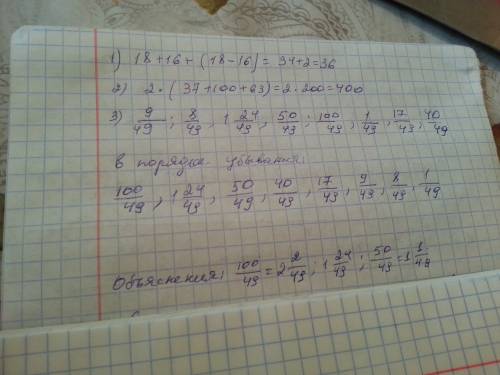 1) 18+16+(18-16)=34+2=36
2) 2·(37+100+63)=2·200=400
3) 9/49; 8/49, 1 24/49, 50/49; 100/49, 1/49, 17/49, 40/49
в порядке убывания:
100/49, 1 24/49, 50/49, 40/49, 17/49, 9/49, 8/49, 1/49
Объяснения: 100/49=2 2/49; 1 24/49; 50/49=1 1/49